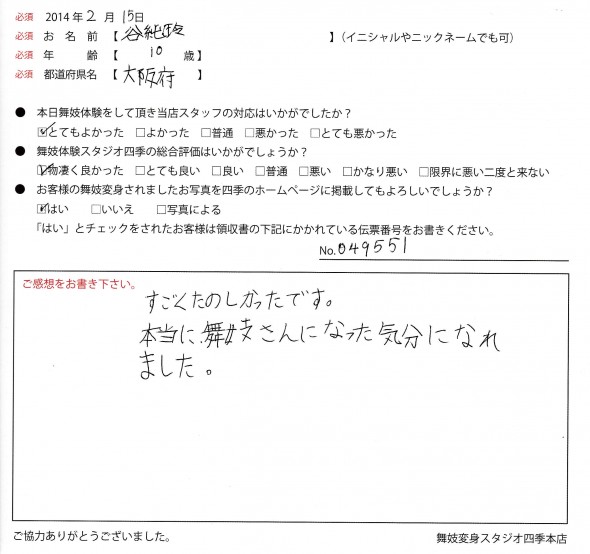 必須 2014年2月15日
必須 お名前【谷純玲 】(イニシャルやニックネームでも可)
必須 年 齢【 10 歳】
必須 都道府県名【大阪府 】
● 本日舞妓体験をして頂き当店スタッフの対応はいかがでしたか?
☑とてもよかった □よかった □普通 □悪かった □とても悪かった
● 舞妓体験スタジオ四季の総合評価はいかがでしょうか?
☑物凄く良かった □とても良い □良い □普通 □悪い □かなり悪い □限界に悪い二度と来ない
● お客様の舞妓変身されましたお写真を四季のホームページに掲載してもよろしいでしょうか?
☑はい □いいえ □写真による
「はい」とチェックをされたお客様は領収書の下記にかかれている伝票番号をお書きください。
No. 049551
ご感想をお書き下さい。
すごくたのしかったです。
本当に舞妓さんになった気分になれ
ました。
ご協力ありがとうございました。 舞妓変身スタジオ四季本店